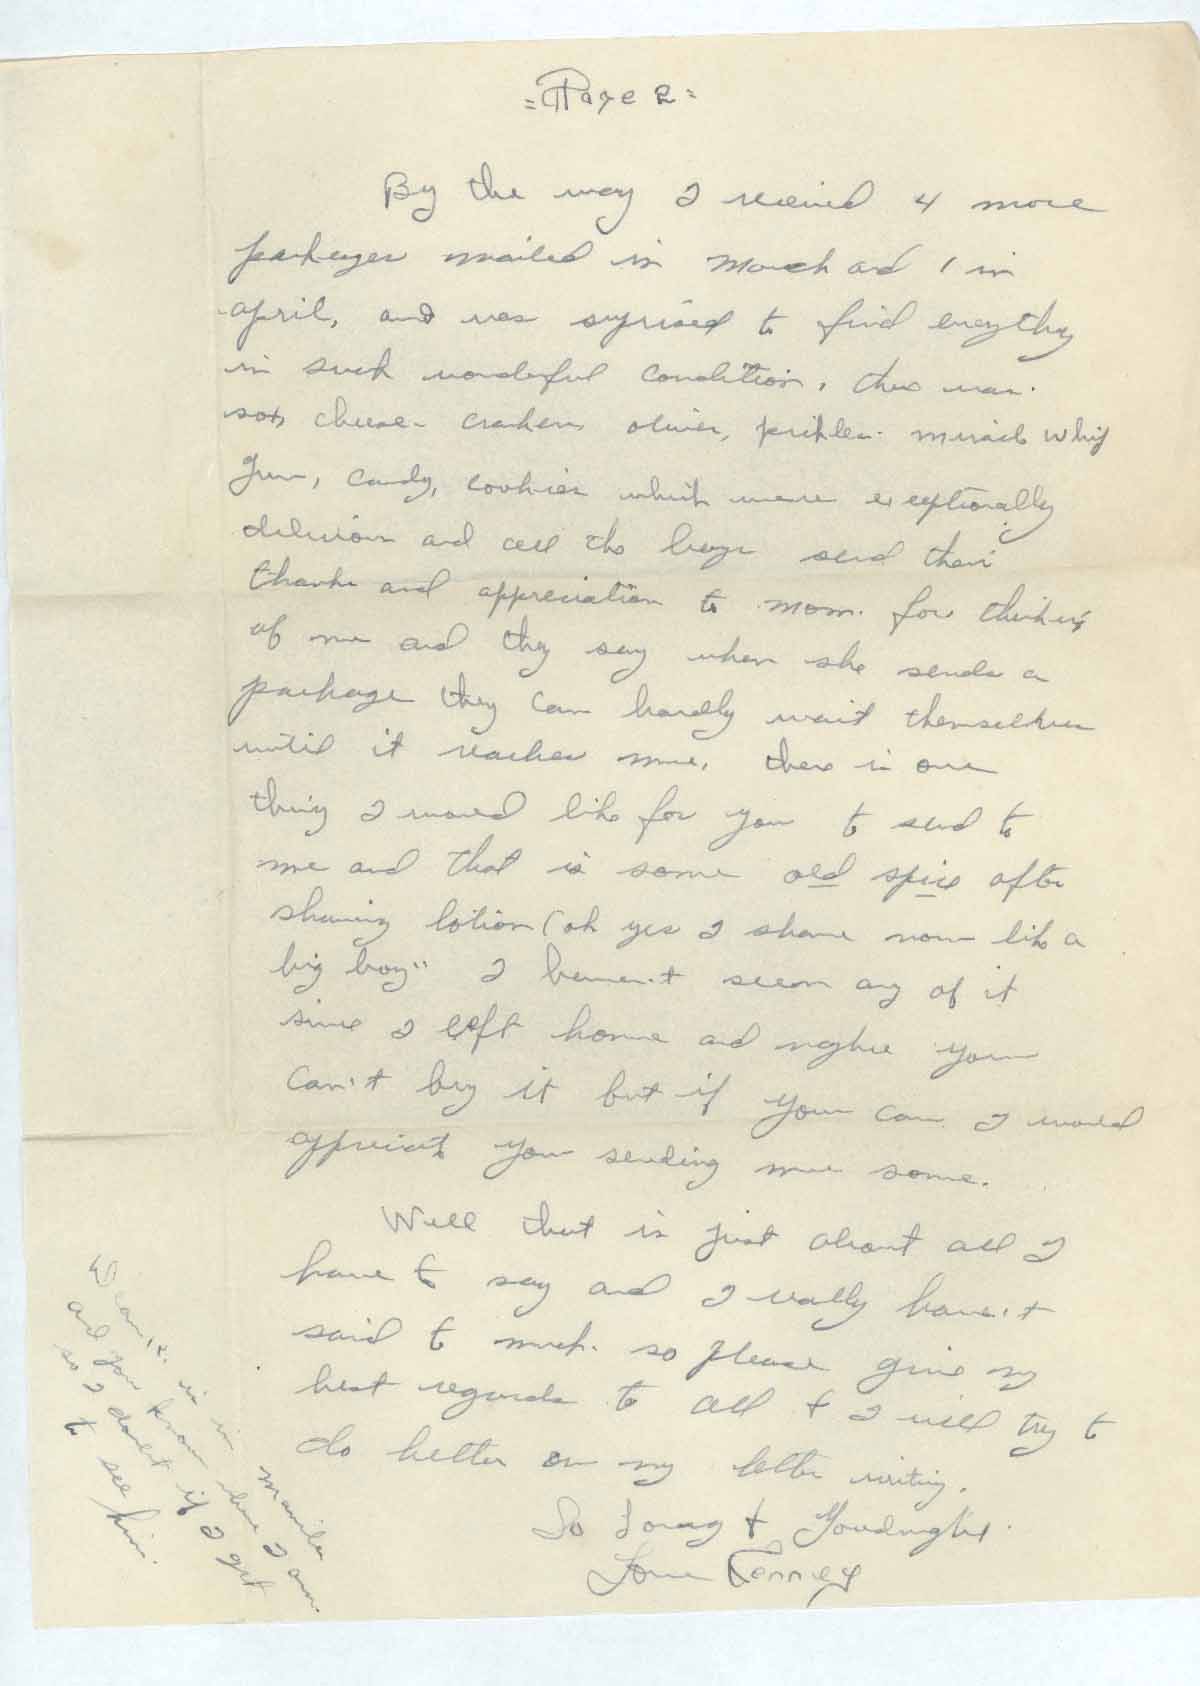 = Page 2 =
By the way I received 4 more
packages mailed in March and 1 in
april, and was suprised to find everything
in such wonderful condition, there was
sox, cheese- crackers olives, pickles- miracle whip
gum, candy, cookies which were exceptionally
delicious and all the boys send their
thanks and appreciation to mom. for thinking
of me and they say when she sends a
package they can hardly wait themselves
until it reaches me. there is one
thing I would like for you to send to
me and that is some old spice after
shaving lotion (oh yes I shave now like a
big boy" I haven't seen any of it
since I left home and maybe you
can't buy it but if you can I would
appreciate you sending me some.
Well that is just about all I
have to say and I really haven't
said to much. so please give my
best regards to all + I will try to
do better on my letter writing.
So Long + Goodnight.
Love Kenney
is in manila
and you know where I am.
so I doubt if I get
to see him.